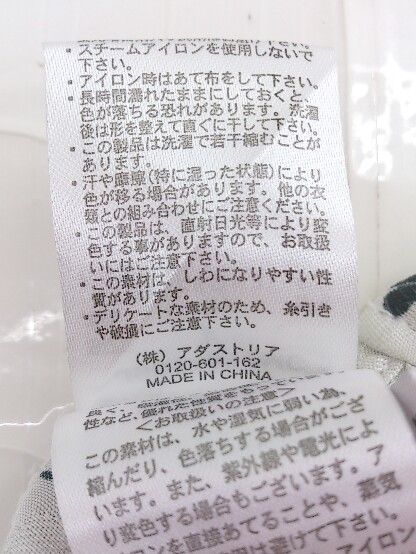 ・スチームアイロンを使用しないで
下さい。
・アイロン時はあて布をして下さい。
・長時間濡れたままにしておくと、
色が落ちる恐れがあります。洗濯
後は形を整えて直ぐに干して下さい。
・この製品は洗濯で若干縮むことが
あります。
・汗や摩擦(特に湿った状態)により
色が移る場合があります。他の衣
類との組み合わせにご注意ください。
・この製品は、直射日光等により変
色する事がありますので、お取扱
いにはご注意下さい。
・この素材は、しわになりやすい性
質があります。
・デリケートな素材のため、糸引き
や破損にご注意下さい。
(株) アダストリア
0120-601-162
MADE IN CHINA
性など、優れた性質をもってい
<お取扱いの注意>
この素材は、水や湿気に弱い為、
縮んだり、色落ちする場合がござ
います。また、紫外線や電光によ
り変色する場合もございます。ア
イロンを直接あてることや、蒸気